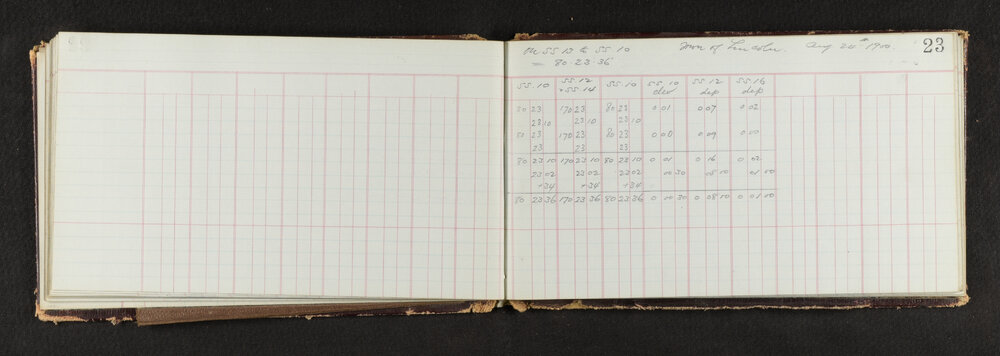 SS 12 to SS. 10 Town of Lincoln. Aug 24th 1900. 23
= 80 . 23 . 36
SS. 10 SS. 12 + SS. 14 SS. 10 SS. 10 dev SS 12 dep SS. 16 dep
80 23 170 23 80 23 0 01 0 07 0 02
23 10 23 10 23 10
80 23 170 23 80 23 0 00 0 09 0 00
23 23 23
80 23 10 170 23 10 80 23 10 0 01 0 16 0 02
23 02 23 02 23 02 00 30 08 10 01 00
+34 +34 +34
80 23 36 170 23 36 80 23 36 0 00 30 0 08 10 0 01 00